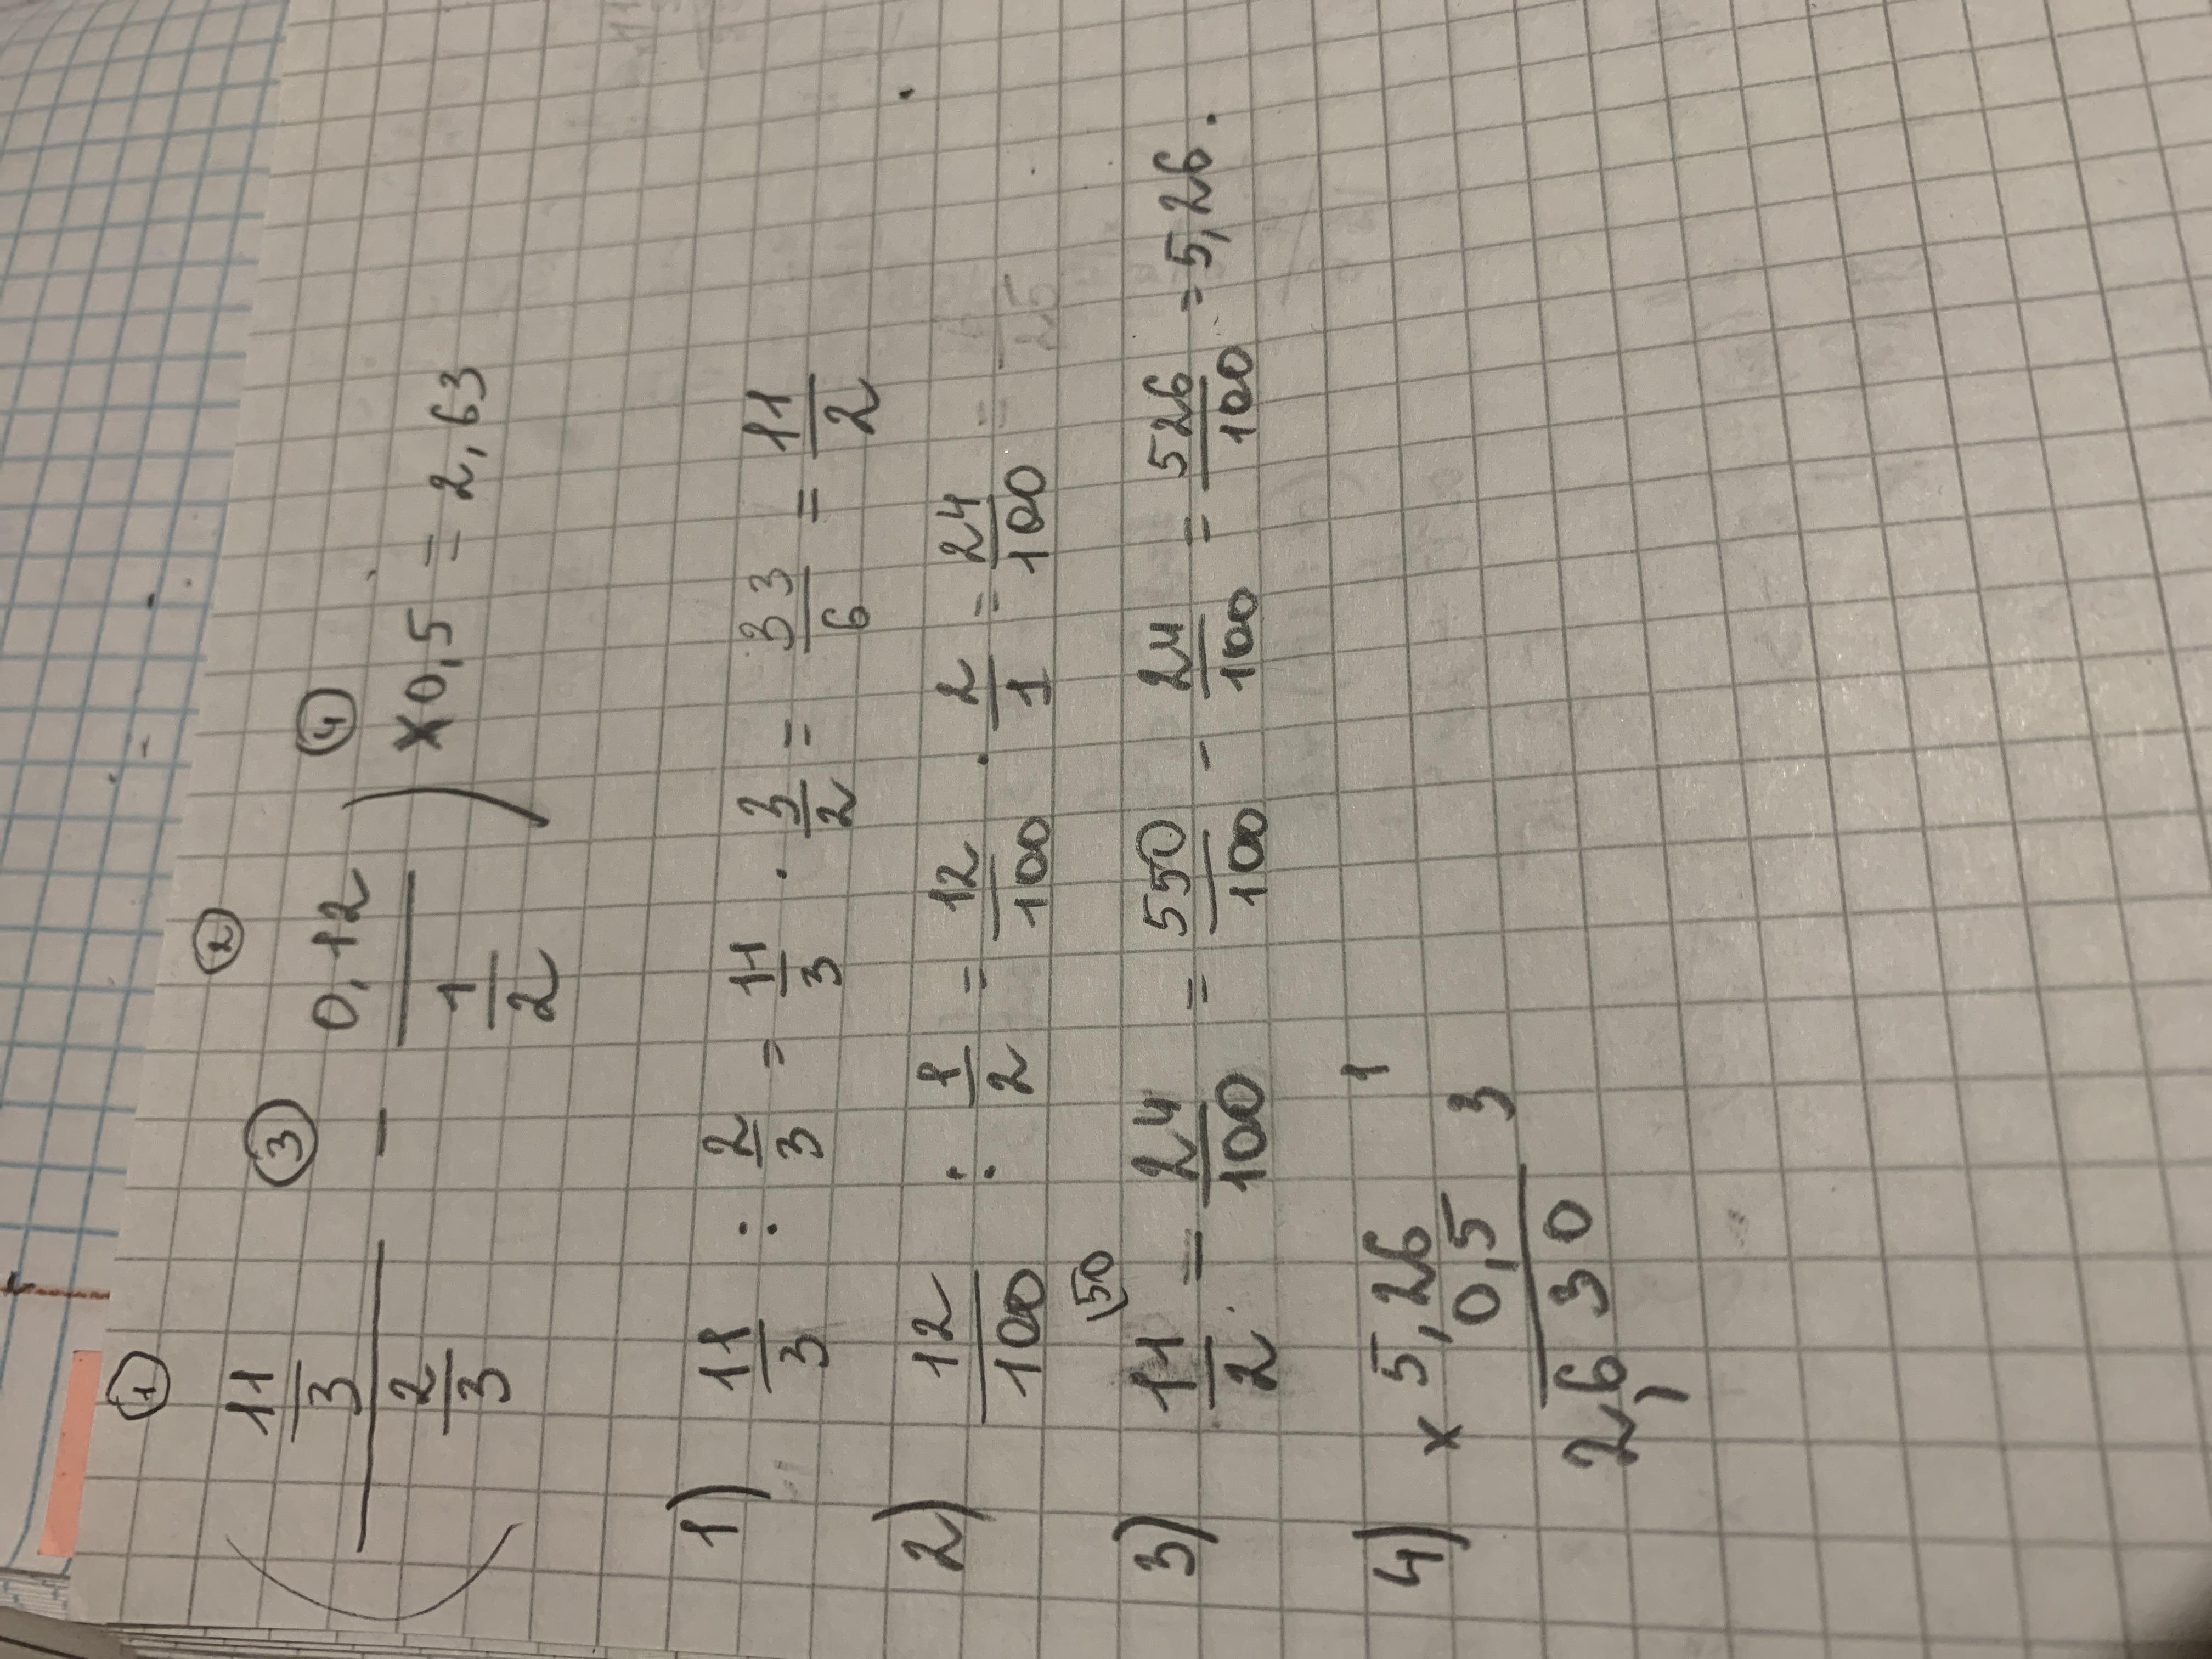 ① ③ ② ④
( 11/3 / 2/3 - 0,12 / 1/2 ) × 0,5 = 2,63
1) 11/3 : 2/3 = 11/3 · 3/2 = 33/6 = 11/2
2) 12/100 : 1/2 = 12/100 · 2/1 = 24/100
(50
3) 11/2 - 24/100 = 550/100 - 24/100 = 526/100 = 5,26.
4) × 5,26 1
0,5 3
2,630